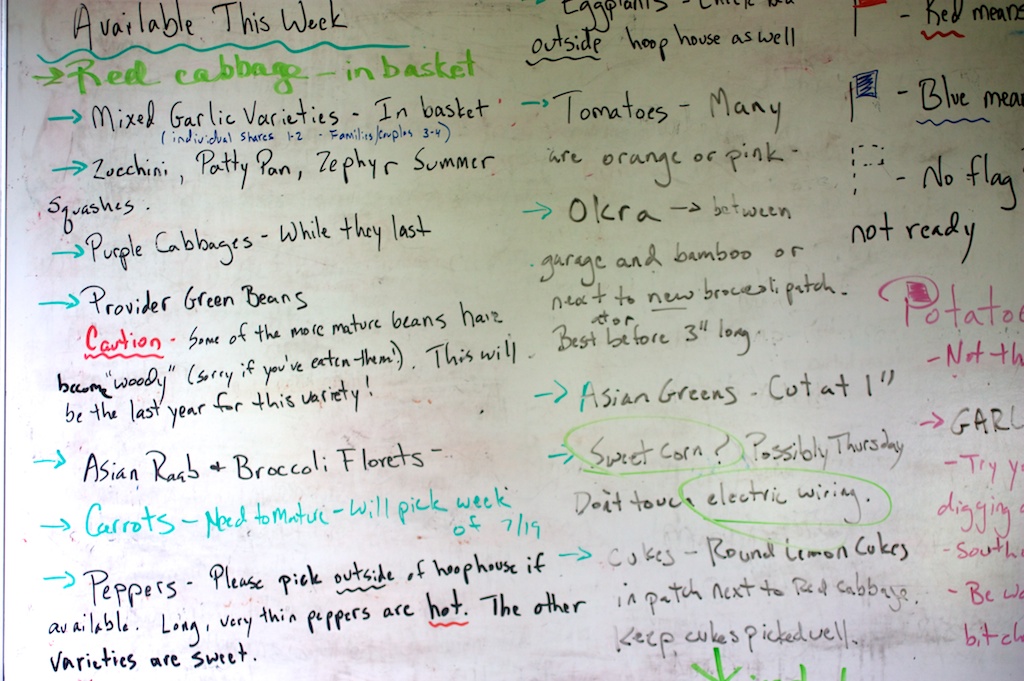 Available This Week
→ Red cabbage - in basket
→ Mixed Garlic Varieties - In basket
(individual shares 1-2 - Families/couples 3-4)
→ Zucchini, Patty Pan, Zephyr Summer
Squashes.
→ Purple Cabbages - While they last
→ Provider Green Beans
Caution - Some of the more mature beans have
become "woody" (sorry if you've eaten them!). This will
be the last year for this variety!
→ Asian Raab + Broccoli Florets -
→ Carrots - Need to Mature - Will pick week
of 7/19
→ Peppers - Please pick outside of hoophouse if
available. Long, very thin peppers are hot. The other
varieties are sweet.
Eggplants -
outside hoop house as well
→ Tomatoes - Many
are orange or pink -
→ Okra → between
garage and bamboo or
next to new broccoli patch.
Best before 3" long.
→ Asian Greens - Cut at 1"
→ Sweet Corn? Possibly Thursday
Don't touch electric wiring.
→ Cukes - Round Lemon Cukes
in patch next to Red cabbage.
Keep cukes picked well.
- Red means
- Blue mean
- No flag
not ready
Potatoe
- Not th
→ GARL
- Try y
digging
- South
- Be w
bitch